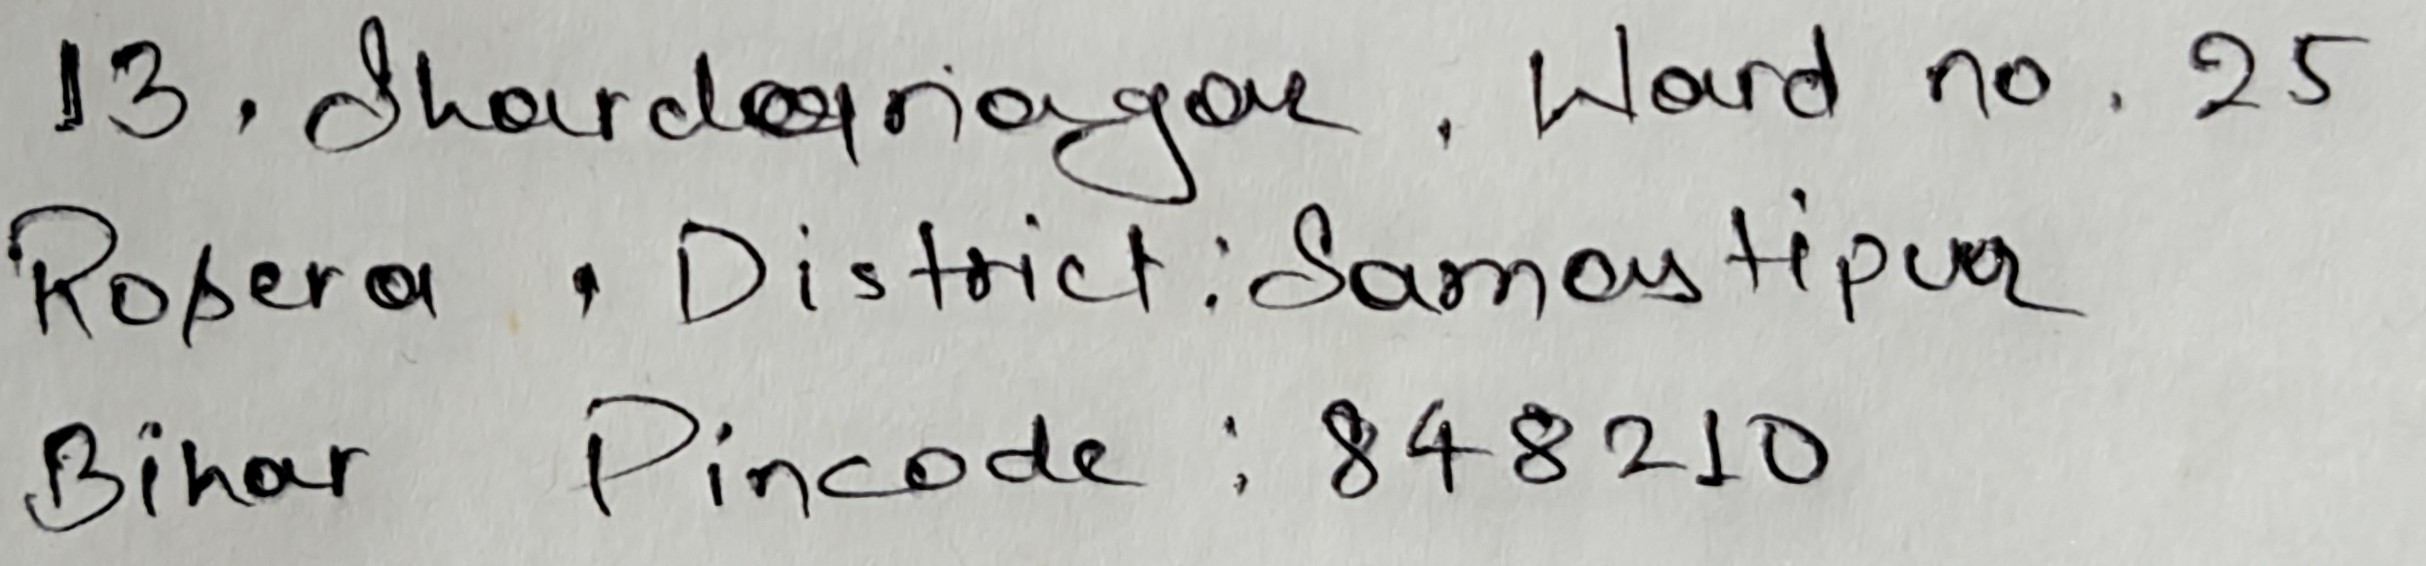 13, Shardanagar, Ward no. 25
Rosera, District: Samastipur
Bihar Pincode: 848210